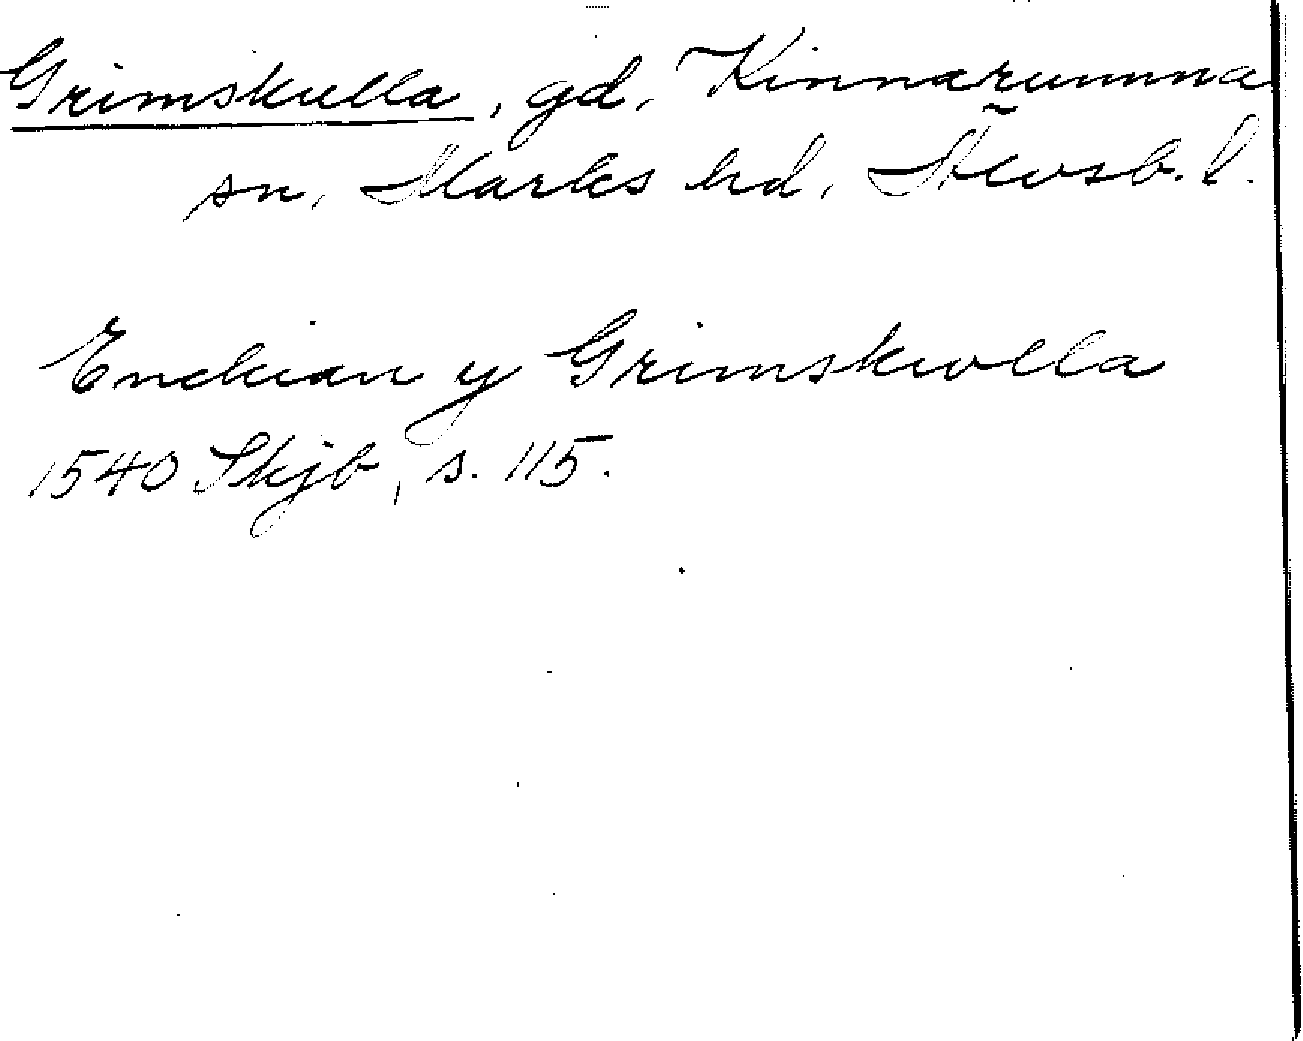 Grimskulla, gd, Kinnarumma
sn, Marks hd, Älvsb. l.
Enckian y Grimskwlla
1540 Skjb, s. 115.